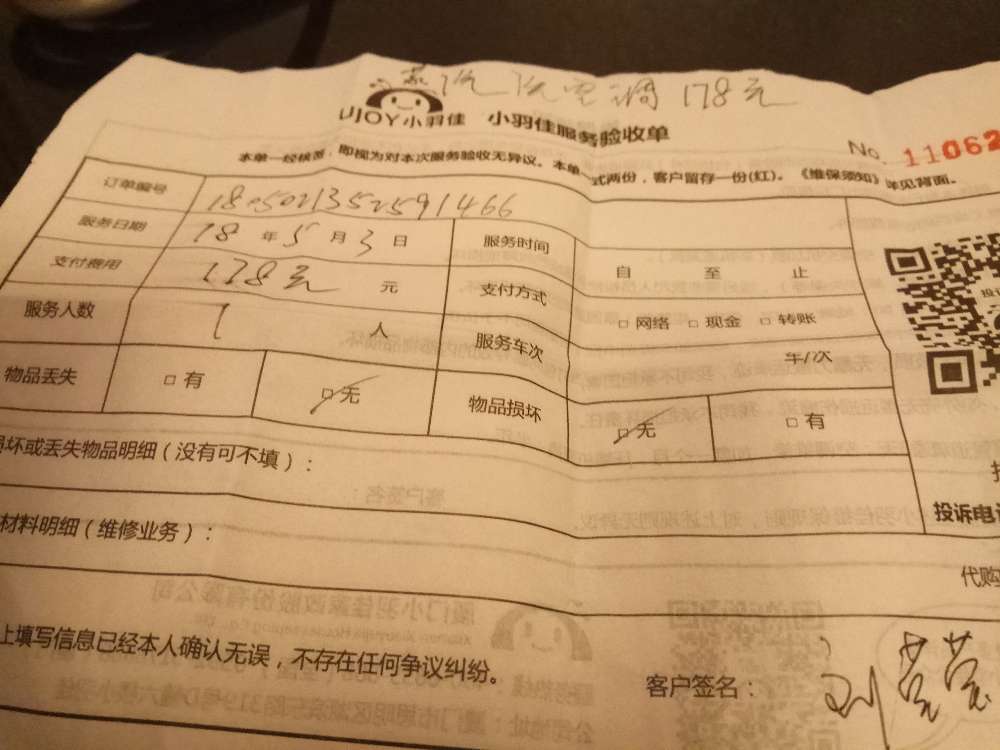 蒸汽洗空调 178元
UJOY小羽佳 小羽佳服务验收单
No. 11062
本单一经核签，即视为对本次服务验收无异议。本单一式两份，客户留存一份(红)。《维保须知》详见背面。
订单编号 1805021352591466
服务日期 18 年 5 月 3 日 服务时间 自 至 止
支付费用 178元 元 支付方式 □ 网络 □ 现金 □ 转账
服务人数 1 人 服务车次 车/次
物品丢失 □ 有 □ 无 物品损坏 □ 无 □ 有
损坏或丢失物品明细（没有可不填）：
投诉电
材料明细（维修业务）：
代购
上填写信息已经本人确认无误，不存在任何争议纠纷。
客户签名：